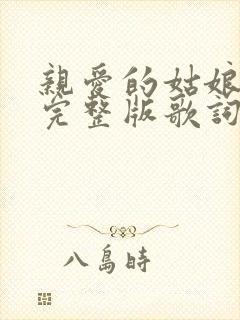 親愛的姑娘
完整版歌詞
八島時